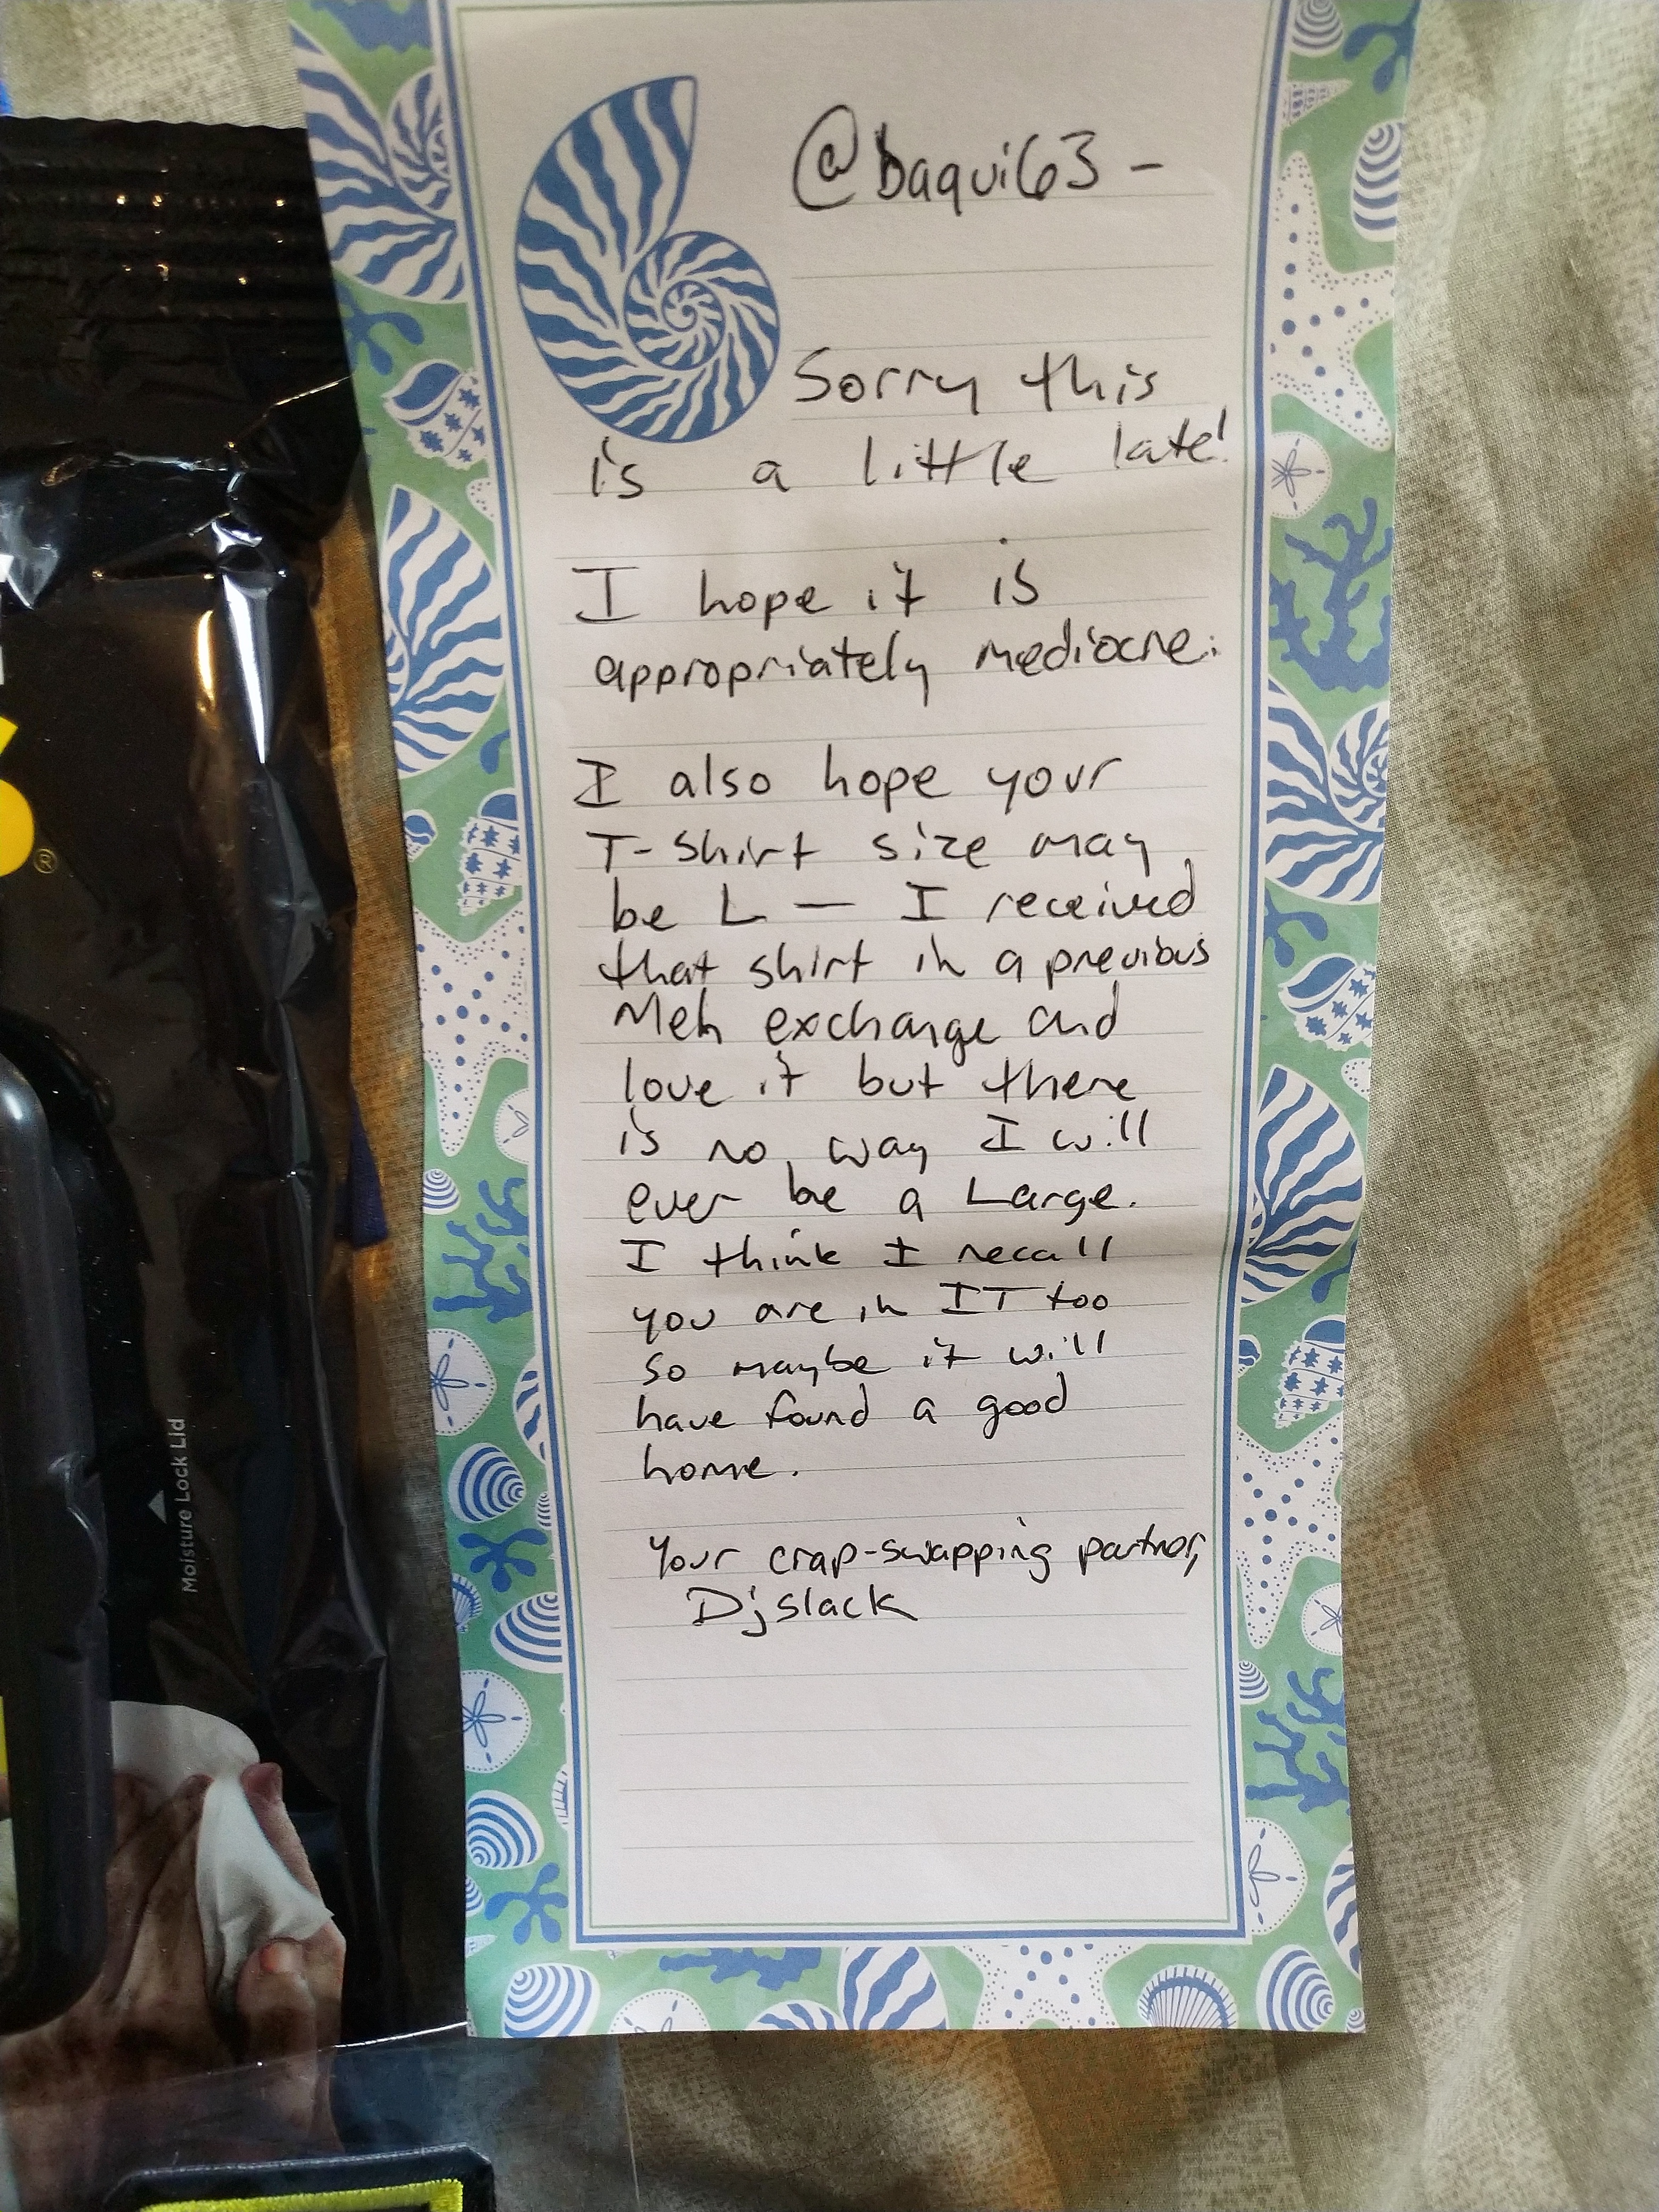 @baqui63 -
Sorry this
is a little late!
I hope it is
appropriately mediocre.
I also hope your
T-shirt size may
be L — I received
that shirt in a previous
Meh exchange and
love it but there
is no way I will
ever be a Large.
I think I recall
you are in IT too
so maybe it will
have found a good
home.
Your crap-swapping partner,
Djslack
®
Moisture Lock Lid